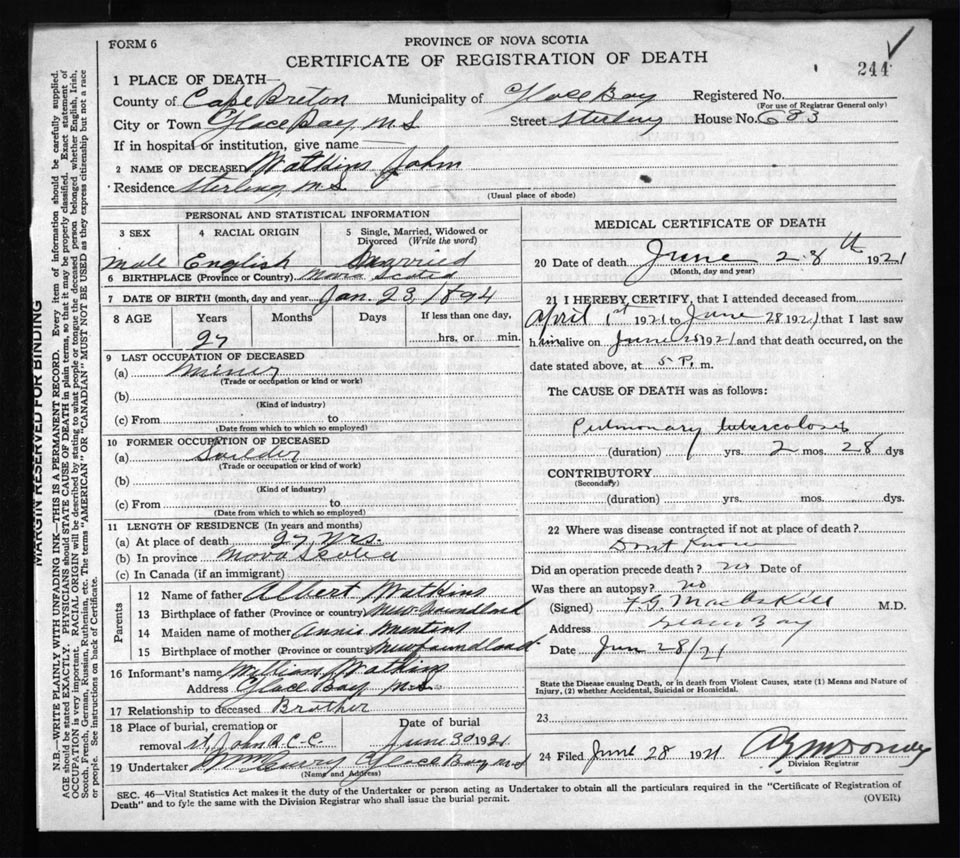 FORM 6
PROVINCE OF NOVA SCOTIA
CERTIFICATE OF REGISTRATION OF DEATH
244
1 PLACE OF DEATH—
County of Cape Breton Municipality of Glace Bay Registered No.
(For use of Registrar General only)
City or Town Glace Bay N.S Street Sterling House No. 683
If in hospital or institution, give name
2 NAME OF DECEASED Watkins John
Residence Sterling N.S.
(Usual place of abode)
PERSONAL AND STATISTICAL INFORMATION
3 SEX 4 RACIAL ORIGIN 5 Single, Married, Widowed or Divorced (Write the word)
Male English Married
6 BIRTHPLACE (Province or Country) Nova Scotia
7 DATE OF BIRTH (month, day and year) Jan. 23, 1894
8 AGE Years Months Days If less than one day,
27 hrs. or min.
9 LAST OCCUPATION OF DECEASED
(a) Miner
(Trade or occupation or kind or work)
(b)
(Kind of industry)
(c) From to
(Date from which to which so employed)
10 FORMER OCCUPATION OF DECEASED
(a)
(Trade or occupation or kind of work)
(b)
(Kind of industry)
(c) From to
(Date from which to which so employed)
11 LENGTH OF RESIDENCE (In years and months)
(a) At place of death 27 yrs.
(b) In province Nova Scotia
(c) In Canada (if an immigrant)
Parents
12 Name of father Albert Watkins
13 Birthplace of father (Province or country) Newfoundland
14 Maiden name of mother Annie
15 Birthplace of mother (Province or country) Newfoundland
16 Informant's name William Watkins
Address Glace Bay N.S.
17 Relationship to deceased Brother
18 Place of burial, cremation or removal St John R.C.C. Date of burial June 30 1921
19 Undertaker Glace Bay N.S
(Name and Address)
MEDICAL CERTIFICATE OF DEATH
20 Date of death June 28th 1921
(Month, day and year)
21 I HEREBY CERTIFY, that I attended deceased from
April 1st 1921 to June 28 1921 that I last saw
him alive on June 1921 and that death occurred, on the
date stated above, at 5 P. m.
The CAUSE OF DEATH was as follows:
Pulmonary tuberculosis
(duration) 1 yrs. 2 mos. 28 dys
CONTRIBUTORY
(Secondary)
(duration) yrs. mos. dys.
22 Where was disease contracted if not at place of death?
Dont Know
Did an operation precede death? no Date of
Was there an autopsy? no
(Signed) MacAskill M.D.
Address Glace Bay
Date Jun 28/21
State the Disease causing Death, or in death from Violent Causes, state (1) Means and Nature of
Injury, (2) whether Accidental, Suicidal or Homicidal.
23
24 Filed June 28 1921
Division Registrar
SEC. 46—Vital Statistics Act makes it the duty of the Undertaker or person acting as Undertaker to obtain all the particulars required in the "Certificate of Registration of
Death" and to fyle the same with the Division Registrar who shall issue the burial permit.
(OVER)
MARGIN RESERVED FOR BINDING
N.B.—WRITE PLAINLY WITH UNFADING INK—THIS IS A PERMANENT RECORD. Every item of information should be carefully supplied.
AGE should be stated EXACTLY. PHYSICIANS should STATE CAUSE OF DEATH in plain terms, so that it may be properly classified. Exact statement of
OCCUPATION is very important. RACIAL ORIGIN will be described by stating to what people or tongue the deceased person belonged whether English, Irish,
Scotch, French, German, Russian, Ruthenian, etc. The terms "AMERICAN" OR "CANADIAN" MUST NOT BE USED as they express citizenship but not a race
or people. See instructions on back of Certificate.